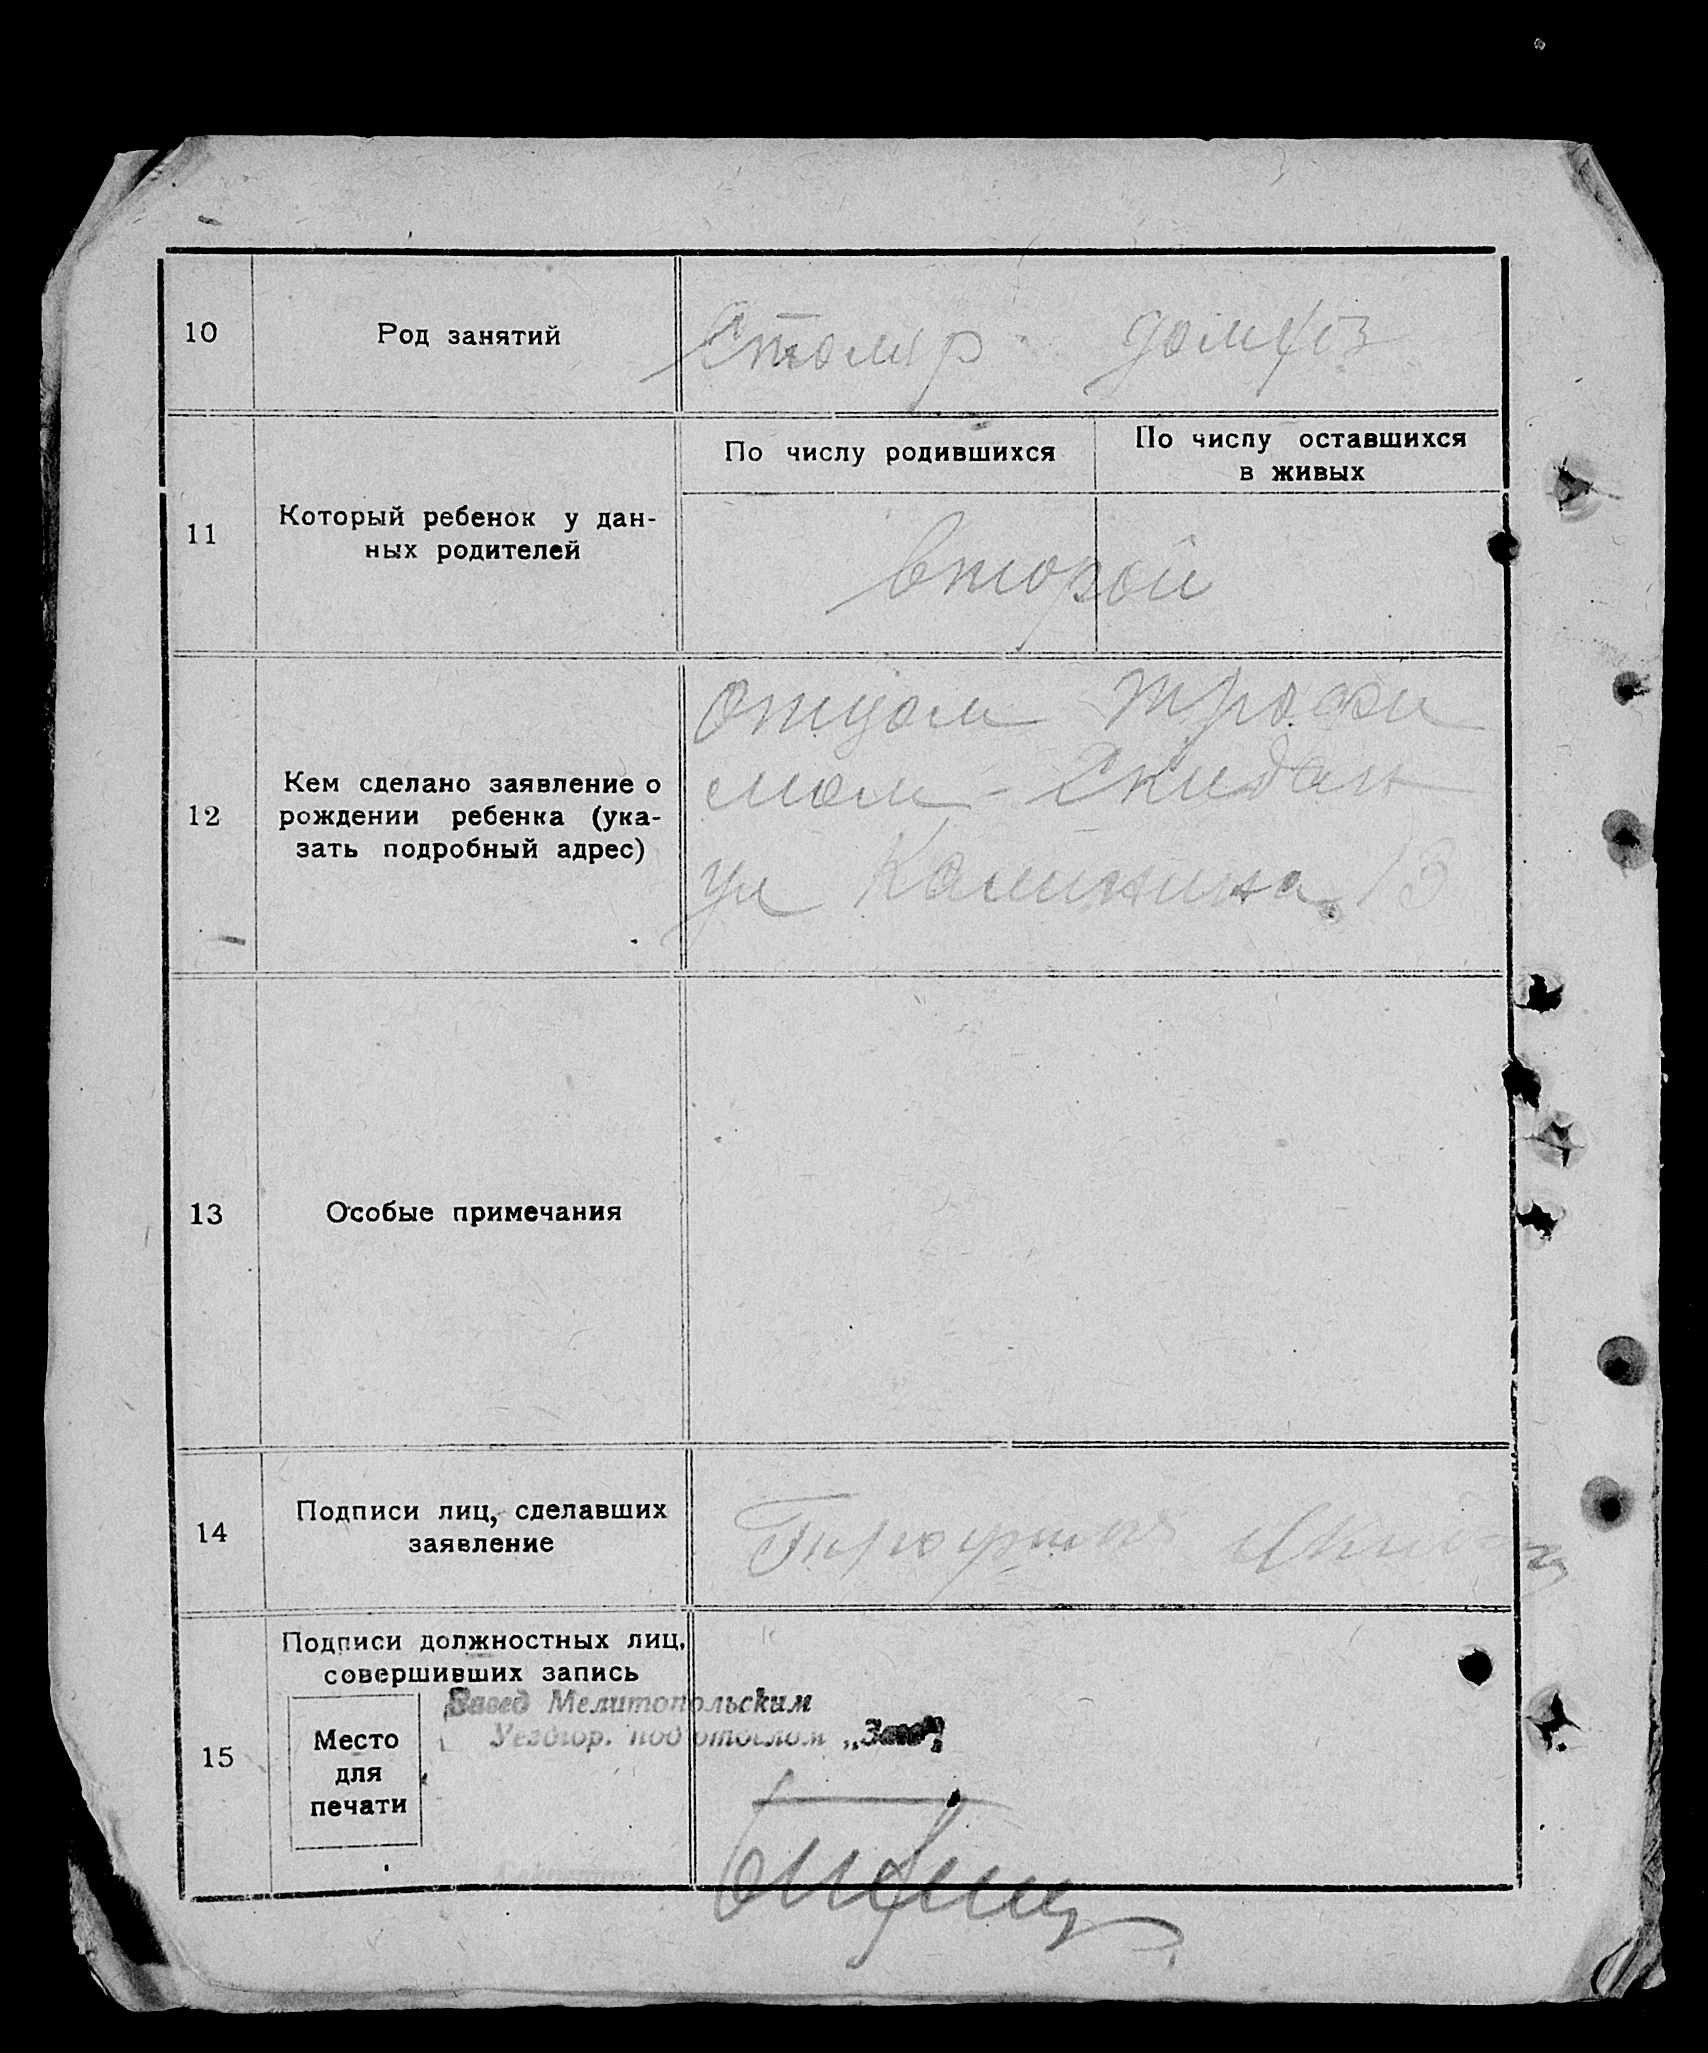 10 Род занятий Столяр домхоз
11 Который ребенок у дан-
ных родителей
По числу родившихся
По числу оставшихся
в живых
второй
12 Кем сделано заявление о
рождении ребенка (ука-
зать подробный адрес)
отцом Трофи
мом - Скидан
ул Калинина 13
13 Особые примечания
14 Подписи лиц, сделавших
заявление
Скидан
15 Подписи должностных лиц,
совершивших запись
Место
для
печати
Завед Мелитопольским
Уездгор. подотделом „Загс"